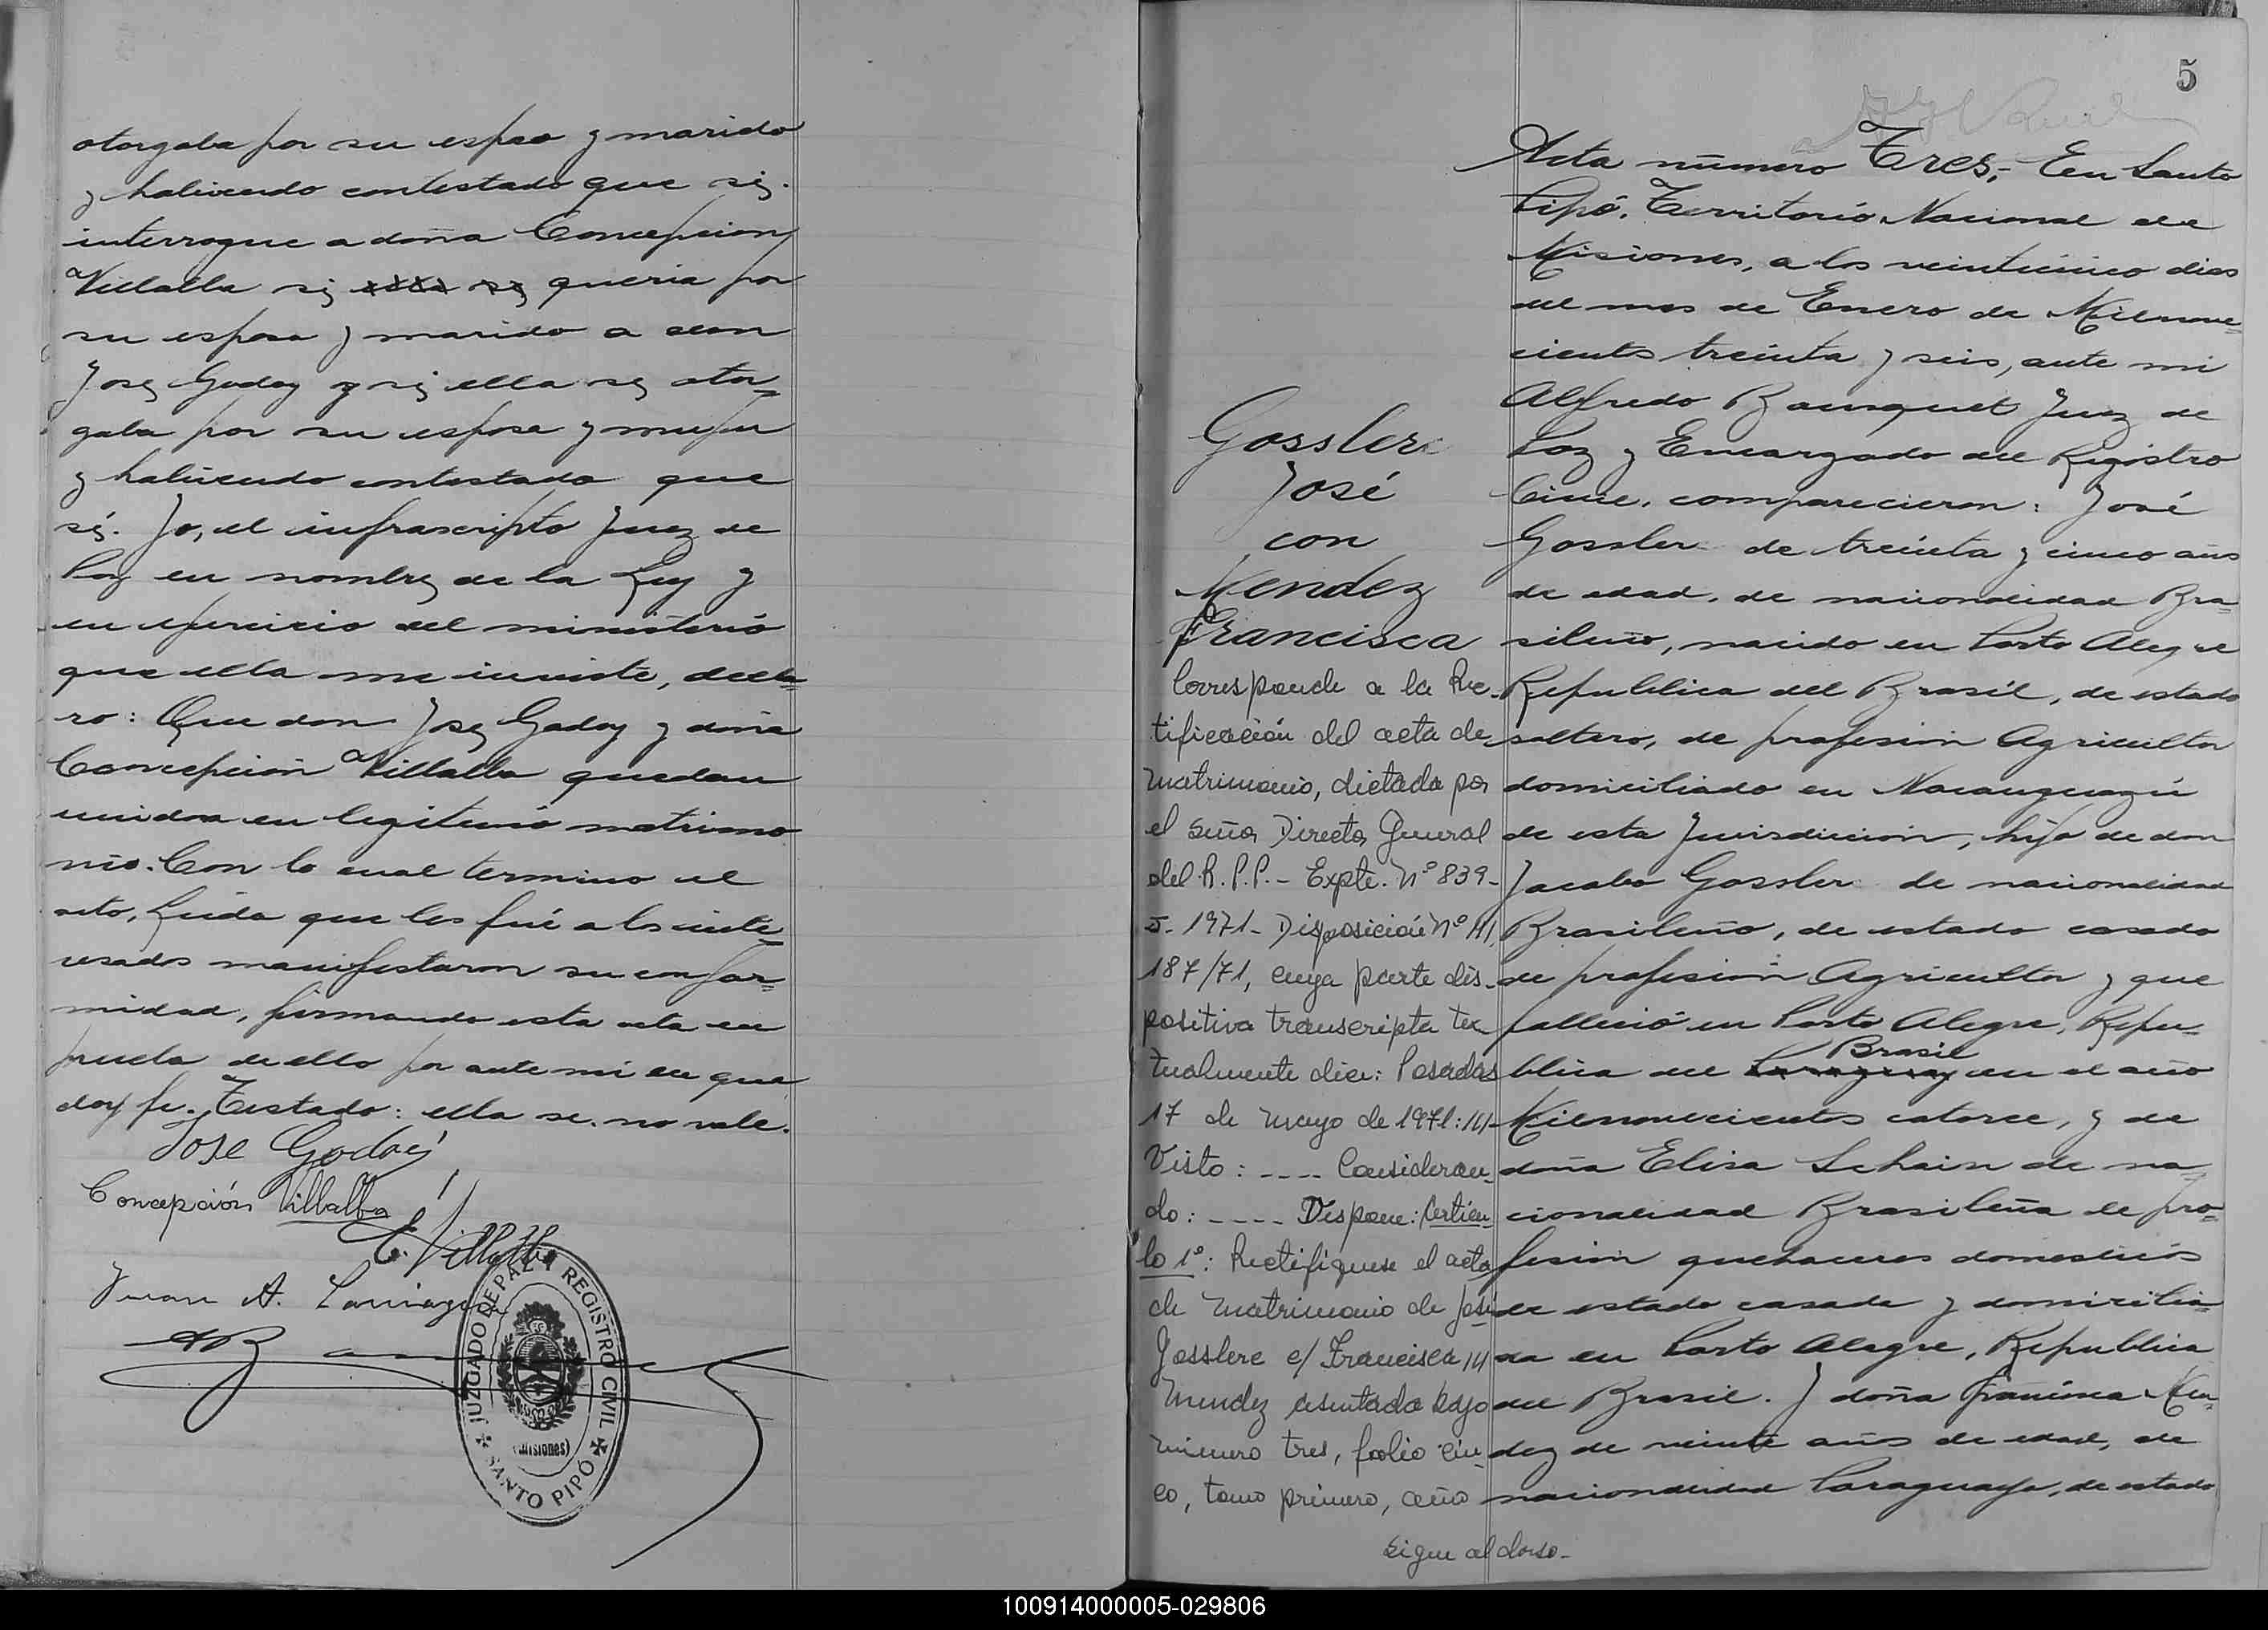 otorgaba por su espso y marido
y habiendo contestado que si,
interrogue a doña Concepcion
Villalba si ella se queria por
su esposo y marido a don
José Godoy y si ella se otor-
gaba por su esposa y mujer
y habiendo contestado que
si. Yo, el infrascripto Juez de
Paz en nombre de la Ley y
en ejercicio del ministerio
que ella me inviste, decla-
ro: Que don José Godoy y doña
Concepción Villalba quedan
unidos en legitimo matrimo
nio. Con lo cual termino el
acto, Leida que les fué a los inte-
resados manifestaron su confor-
midad, firmando esta acta en
prueba de ello por ante mi en que
doy fe. Testado: ella se. no vale.
Jose Godoy
Concepción Villalba
C. Villalba
Juan A.
JUZGADO DE PAZ Y REGISTRO CIVIL
(Misiones)
SANTO PIPÓ
5
Acta número Tres,- En Santo
Pipó, Territorio Nacional de
Misiones, a los veinticinco dias
del mes de Enero de Milnove-
cientos treinta y seis, ante mi
Alfredo Bousquet Juez de
Paz y Encargado del Registro
Civil, comparecieron: José
Gossler de treinta y cinco años
de edad, de nacionalidad Bra-
sileño, nacido en Porto Alegre
Republica del Brasil, de estado
soltero, de profesion Agricultor
domiciliado en Ñacanguazú
de esta Jurisdiccion, hijo de don
Jacabo Gossler de nacionalidad
Brasileño, de estado casado
de profesion Agricultor y que
fallecio en Porto Alegre, Repu-
Brasil
blica del Paraguay en el año
Milnovecientos catorce, y de
doña Elisa Schain de na-
cionalidad Brasileña de pro-
fesion quehaceres domesticos
de estado casada y domicilia-
da en Porto Alegre, Republica
del Brasil. Y doña Francisca Men-
dez de veinte años de edad, de
nacionalidad Paraguaya, de estado
Gosslere
José
con
Mendez
Francisca
Corresponde a la Rec-
tificación del acta de
matrimonio, dictada por
el señor Director General
del R.P.P.- Expte. Nº 839-
J- 1971- Disposición Nº ///
187/71, cuya parte dis-
positiva transcripta tex-
tualmente dice: Posadas
17 de mayo de 1971: ///
Visto: ---- Consideran-
do: ---- Dispone: Artícu-
lo 1º: Rectifíquese el acta
de matrimonio de José
Gosslere c/ Francisca ///
Mendez asentada bajo
número tres, folio cin-
co, tomo primero, año
sigue al dorso-
100914000005-029806